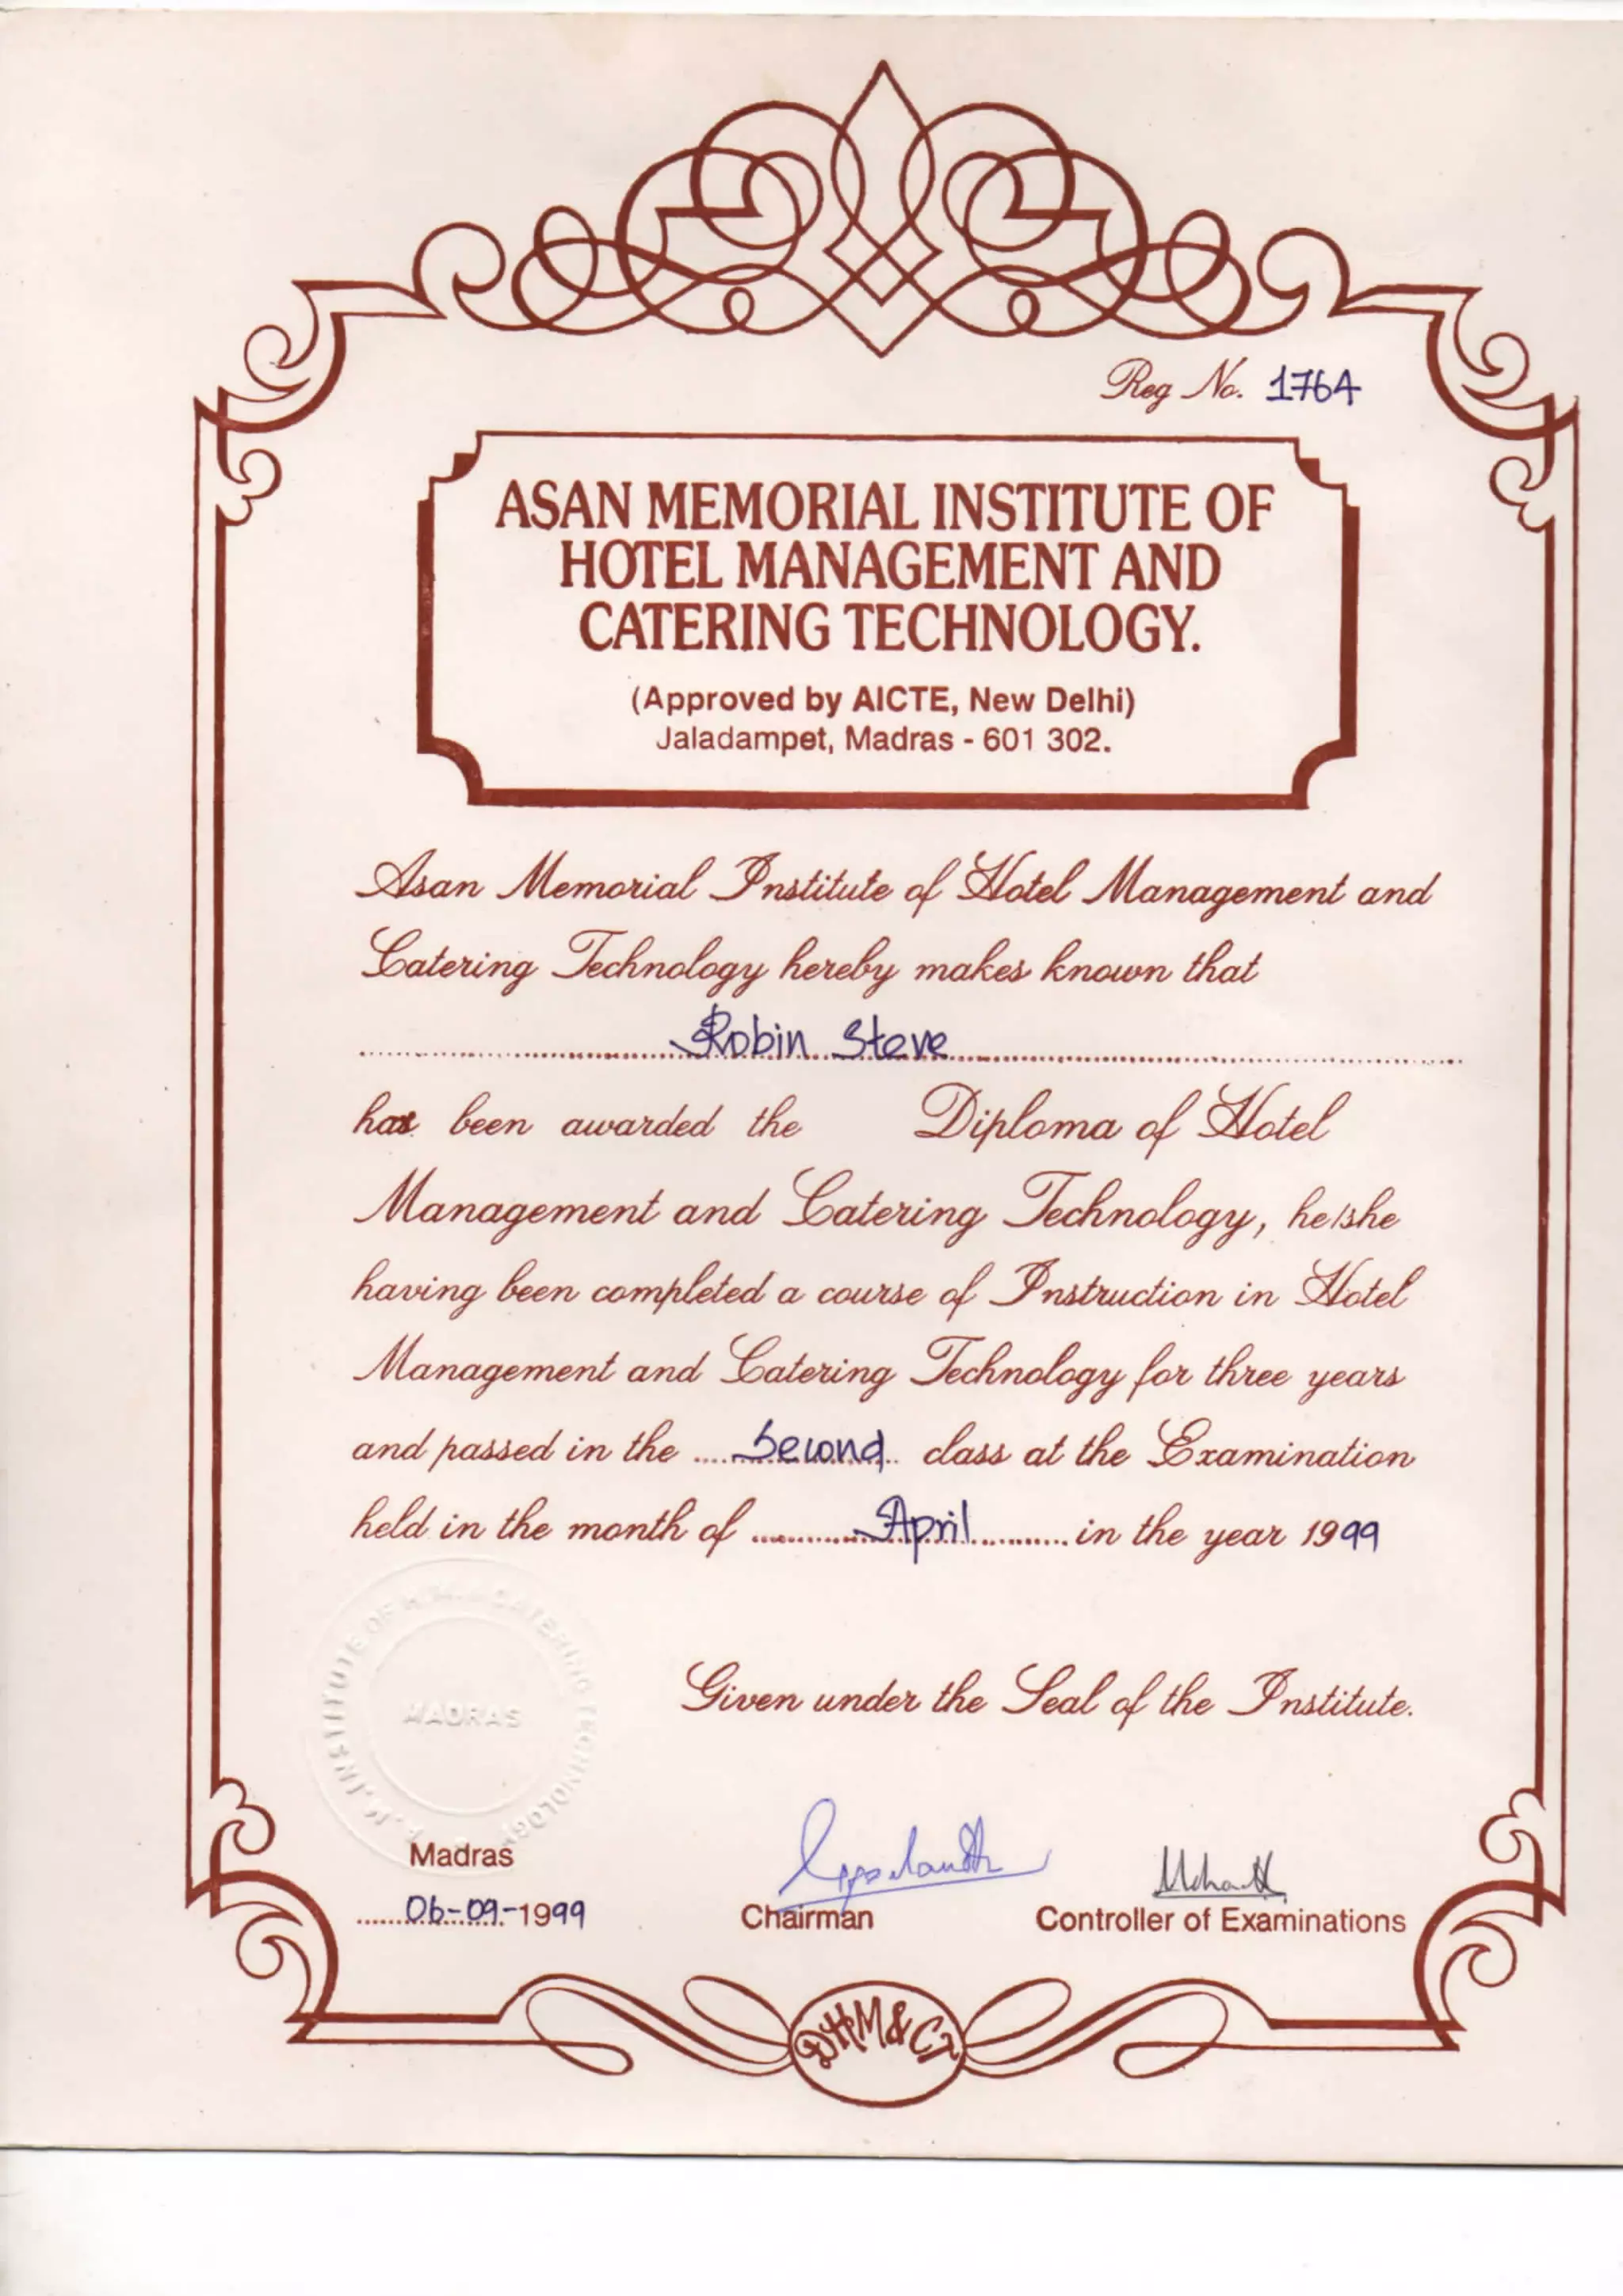 Reg No. 1764
ASAN MEMORIAL INSTITUTE OF
HOTEL MANAGEMENT AND
CATERING TECHNOLOGY.
(Approved by AICTE, New Delhi)
Jaladampet, Madras - 601 302.
Asan Memorial Institute of Hotel Management and
Catering Technology hereby makes known that
Robin Steve
has been awarded the Diploma of Hotel
Management and Catering Technology, he/she
having been completed a course of Instruction in Hotel
Management and Catering Technology for three years
and passed in the Second class at the Examination
held in the month of April in the year 1999
INSTITUTE OF H.M. & CATERING TECHNOLOGY
MADRAS
Given under the Seal of the Institute.
Madras
06-09-1999
Chairman
Controller of Examinations
DHM&CT